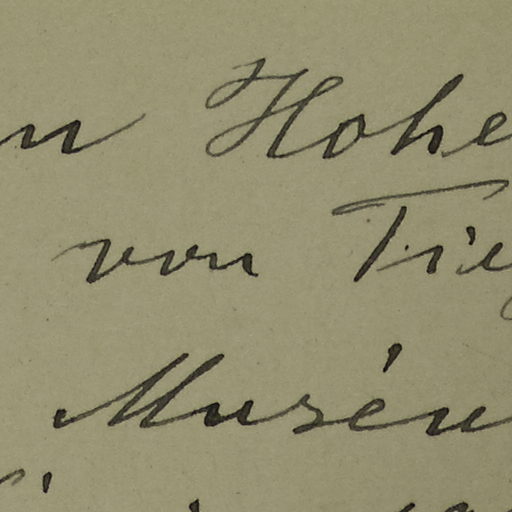 n Hohe
von Tie
Muséu